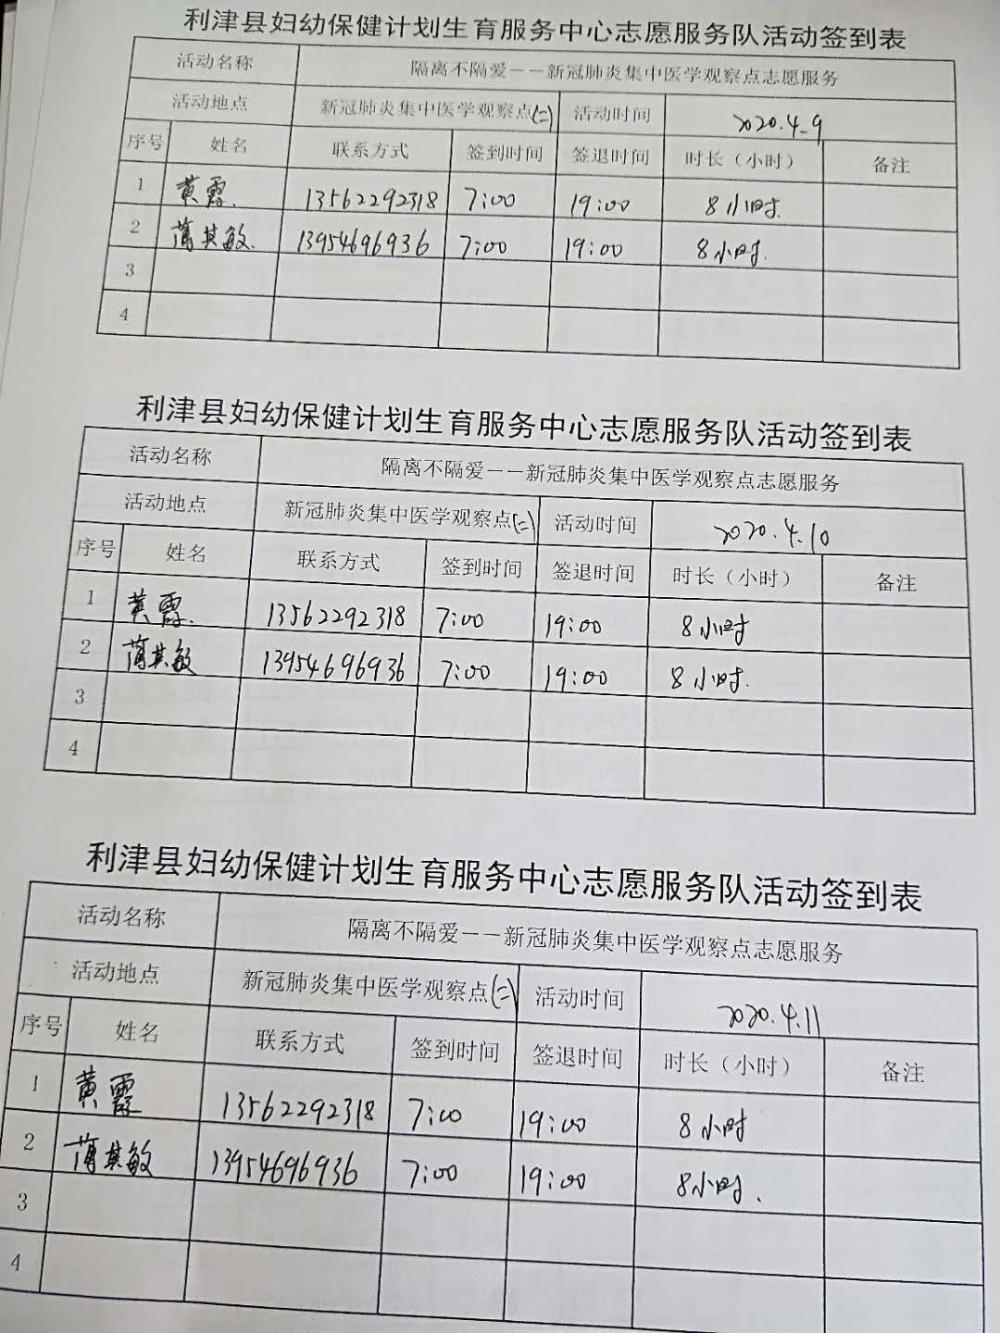 利津县妇幼保健计划生育服务中心志愿服务队活动签到表
活动名称 隔离不隔爱——新冠肺炎集中医学观察点志愿服务
活动地点 新冠肺炎集中医学观察点(二) 活动时间 2020.4.9
序号 姓名 联系方式 签到时间 签退时间 时长（小时） 备注
1 黄霞. 13562292318 7:00 19:00 8小时.
2 薄其敏. 13954696936 7:00 19:00 8小时.
3
4
利津县妇幼保健计划生育服务中心志愿服务队活动签到表
活动名称 隔离不隔爱——新冠肺炎集中医学观察点志愿服务
活动地点 新冠肺炎集中医学观察点(二) 活动时间 2020.4.10
序号 姓名 联系方式 签到时间 签退时间 时长（小时） 备注
1 黄霞. 13562292318 7:00 19:00 8小时
2 薄其敏 13954696936 7:00 19:00 8小时.
3
4
利津县妇幼保健计划生育服务中心志愿服务队活动签到表
活动名称 隔离不隔爱——新冠肺炎集中医学观察点志愿服务
活动地点 新冠肺炎集中医学观察点(二) 活动时间 2020.4.11
序号 姓名 联系方式 签到时间 签退时间 时长（小时） 备注
1 黄霞 13562292318 7:00 19:00 8小时
2 薄其敏 13954696936 7:00 19:00 8小时.
3
4